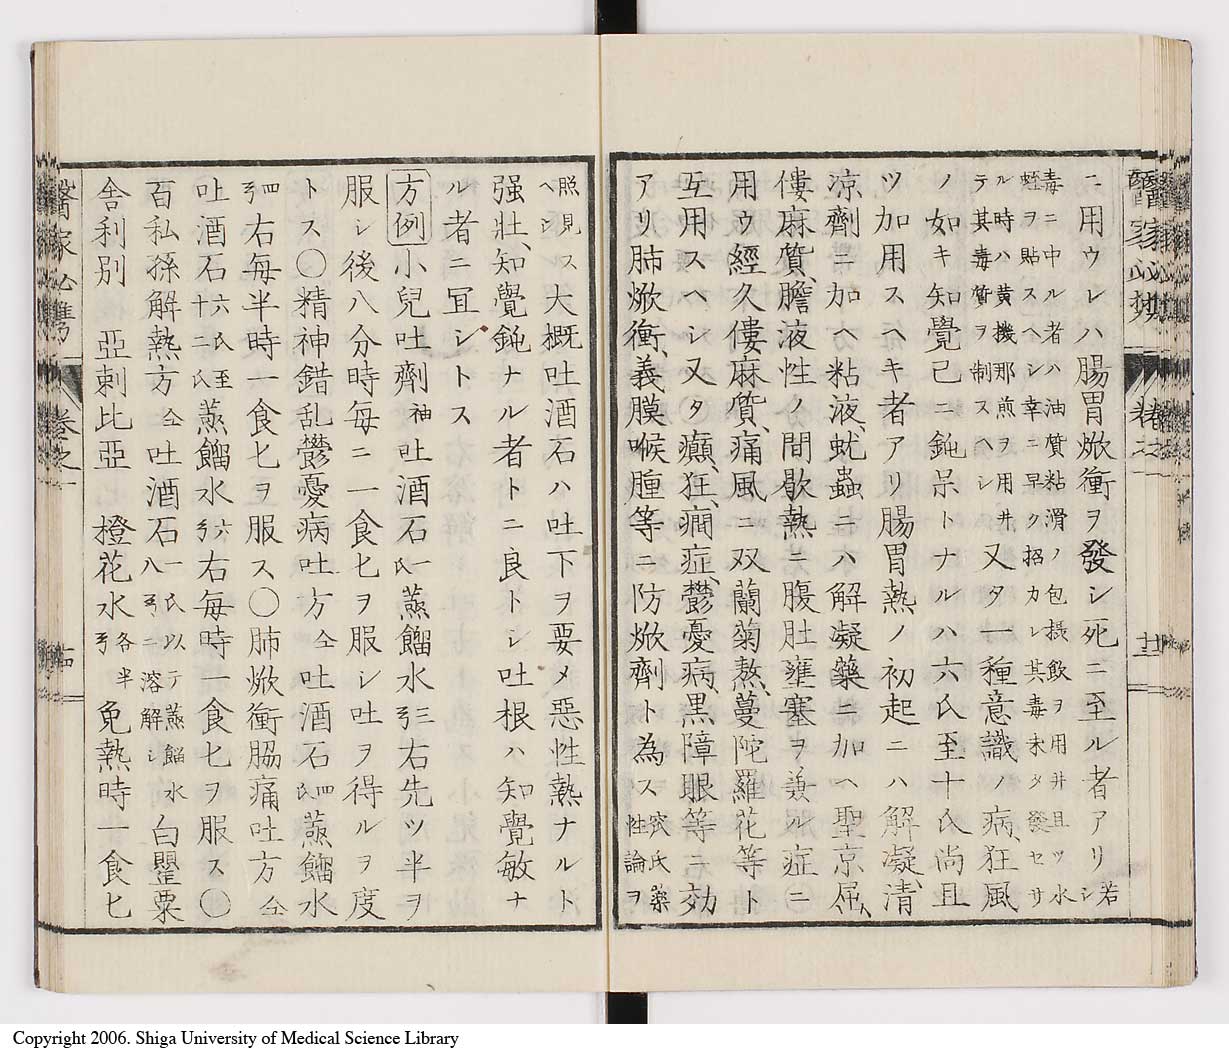 ニ用ウレハ腸胃焮衝ヲ發シ死ニ至ル者アリ若シ水
毒ニ中ル者ハ油質粘滑ノ包摂飲ヲ用井且ツ水
蛭ヲ貼スヘシ幸ニ早ク招カレ其毒未タ發セサ
ル時ハ黄機那煎ヲ用井
テ其毒質ヲ制スヘシ又タ一種意識ノ病、狂風
ノ如キ知覺已ニ鈍呆トナルハ六氏至十氏尚且
ツ加用スヘキ者アリ腸胃熱ノ初起ニハ解凝、清
涼劑ニ加ヘ粘液、蚘蟲ニハ解凝藥ニ加ヘ聖京倔、
僂麻質、膽液性ノ間歇熱若腹肚壅塞ヲ兼ル症ニ
用ウ經久僂麻質、痛風ニ双蘭菊熬、蔓陀羅花等ト
互用スヘシ又タ〇癲、狂、癇症、鬱憂病、黒障眼等ニ効
アリ肺焮衝、義膜喉腫等ニ防焮劑ト為ス
性論ヲ
照見スヘシ大概吐酒石ハ吐下ヲ要メ惡性熱ナルト
强壯、知覺鈍ナル者トニ良トシ吐根ハ知覺敏ナ
ル者ニ冝シトス
方例 小兒吐劑 袖 吐酒石一氏 蒸餾水三弓 右先ツ半ヲ
服シ後八分時毎ニ一食匕ヲ服シ吐ヲ得ルヲ度
トス〇精神錯乱鬱憂病吐方 仝 吐酒石四氏 蒸餾水
四弓 右毎半時一食匕ヲ服ス〇肺焮衝脇痛吐方 仝
吐酒石六氏至十二氏 蒸餾水六弓 右毎時一食匕ヲ服ス〇
百私孫解熱方 仝 吐酒石一氏以テ蒸餾水八弓ニ溶解シ 白罌粟
舎利別 亞剌比亞 橙花水各半弓 免熱時一食匕
醫家必携 卷之一